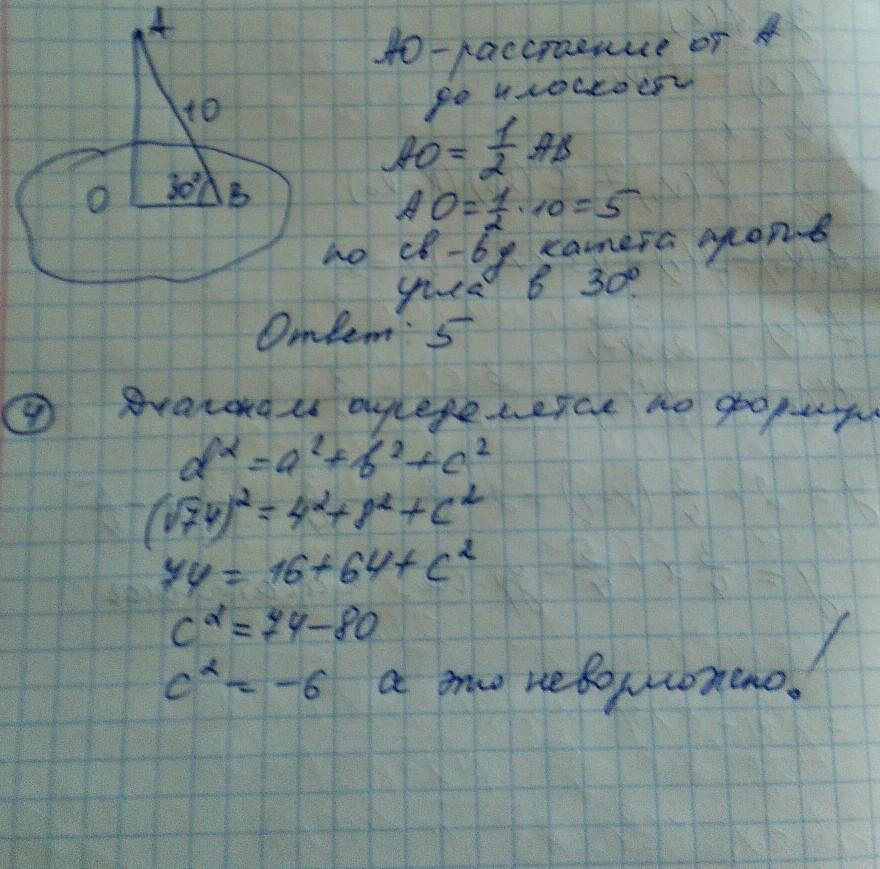 A
10
O 30° B
AO - расстояние от A
до плоскости
AO = 1/2 AB
AO = 1/2 · 10 = 5
по св-ву катета против
угла в 30°.
Ответ: 5
4 Диагональ определяется по формул
d² = a² + b² + c²
(√74)² = 4² + 8² + c²
74 = 16 + 64 + c²
c² = 74 - 80
c² = -6 а это невозможно!